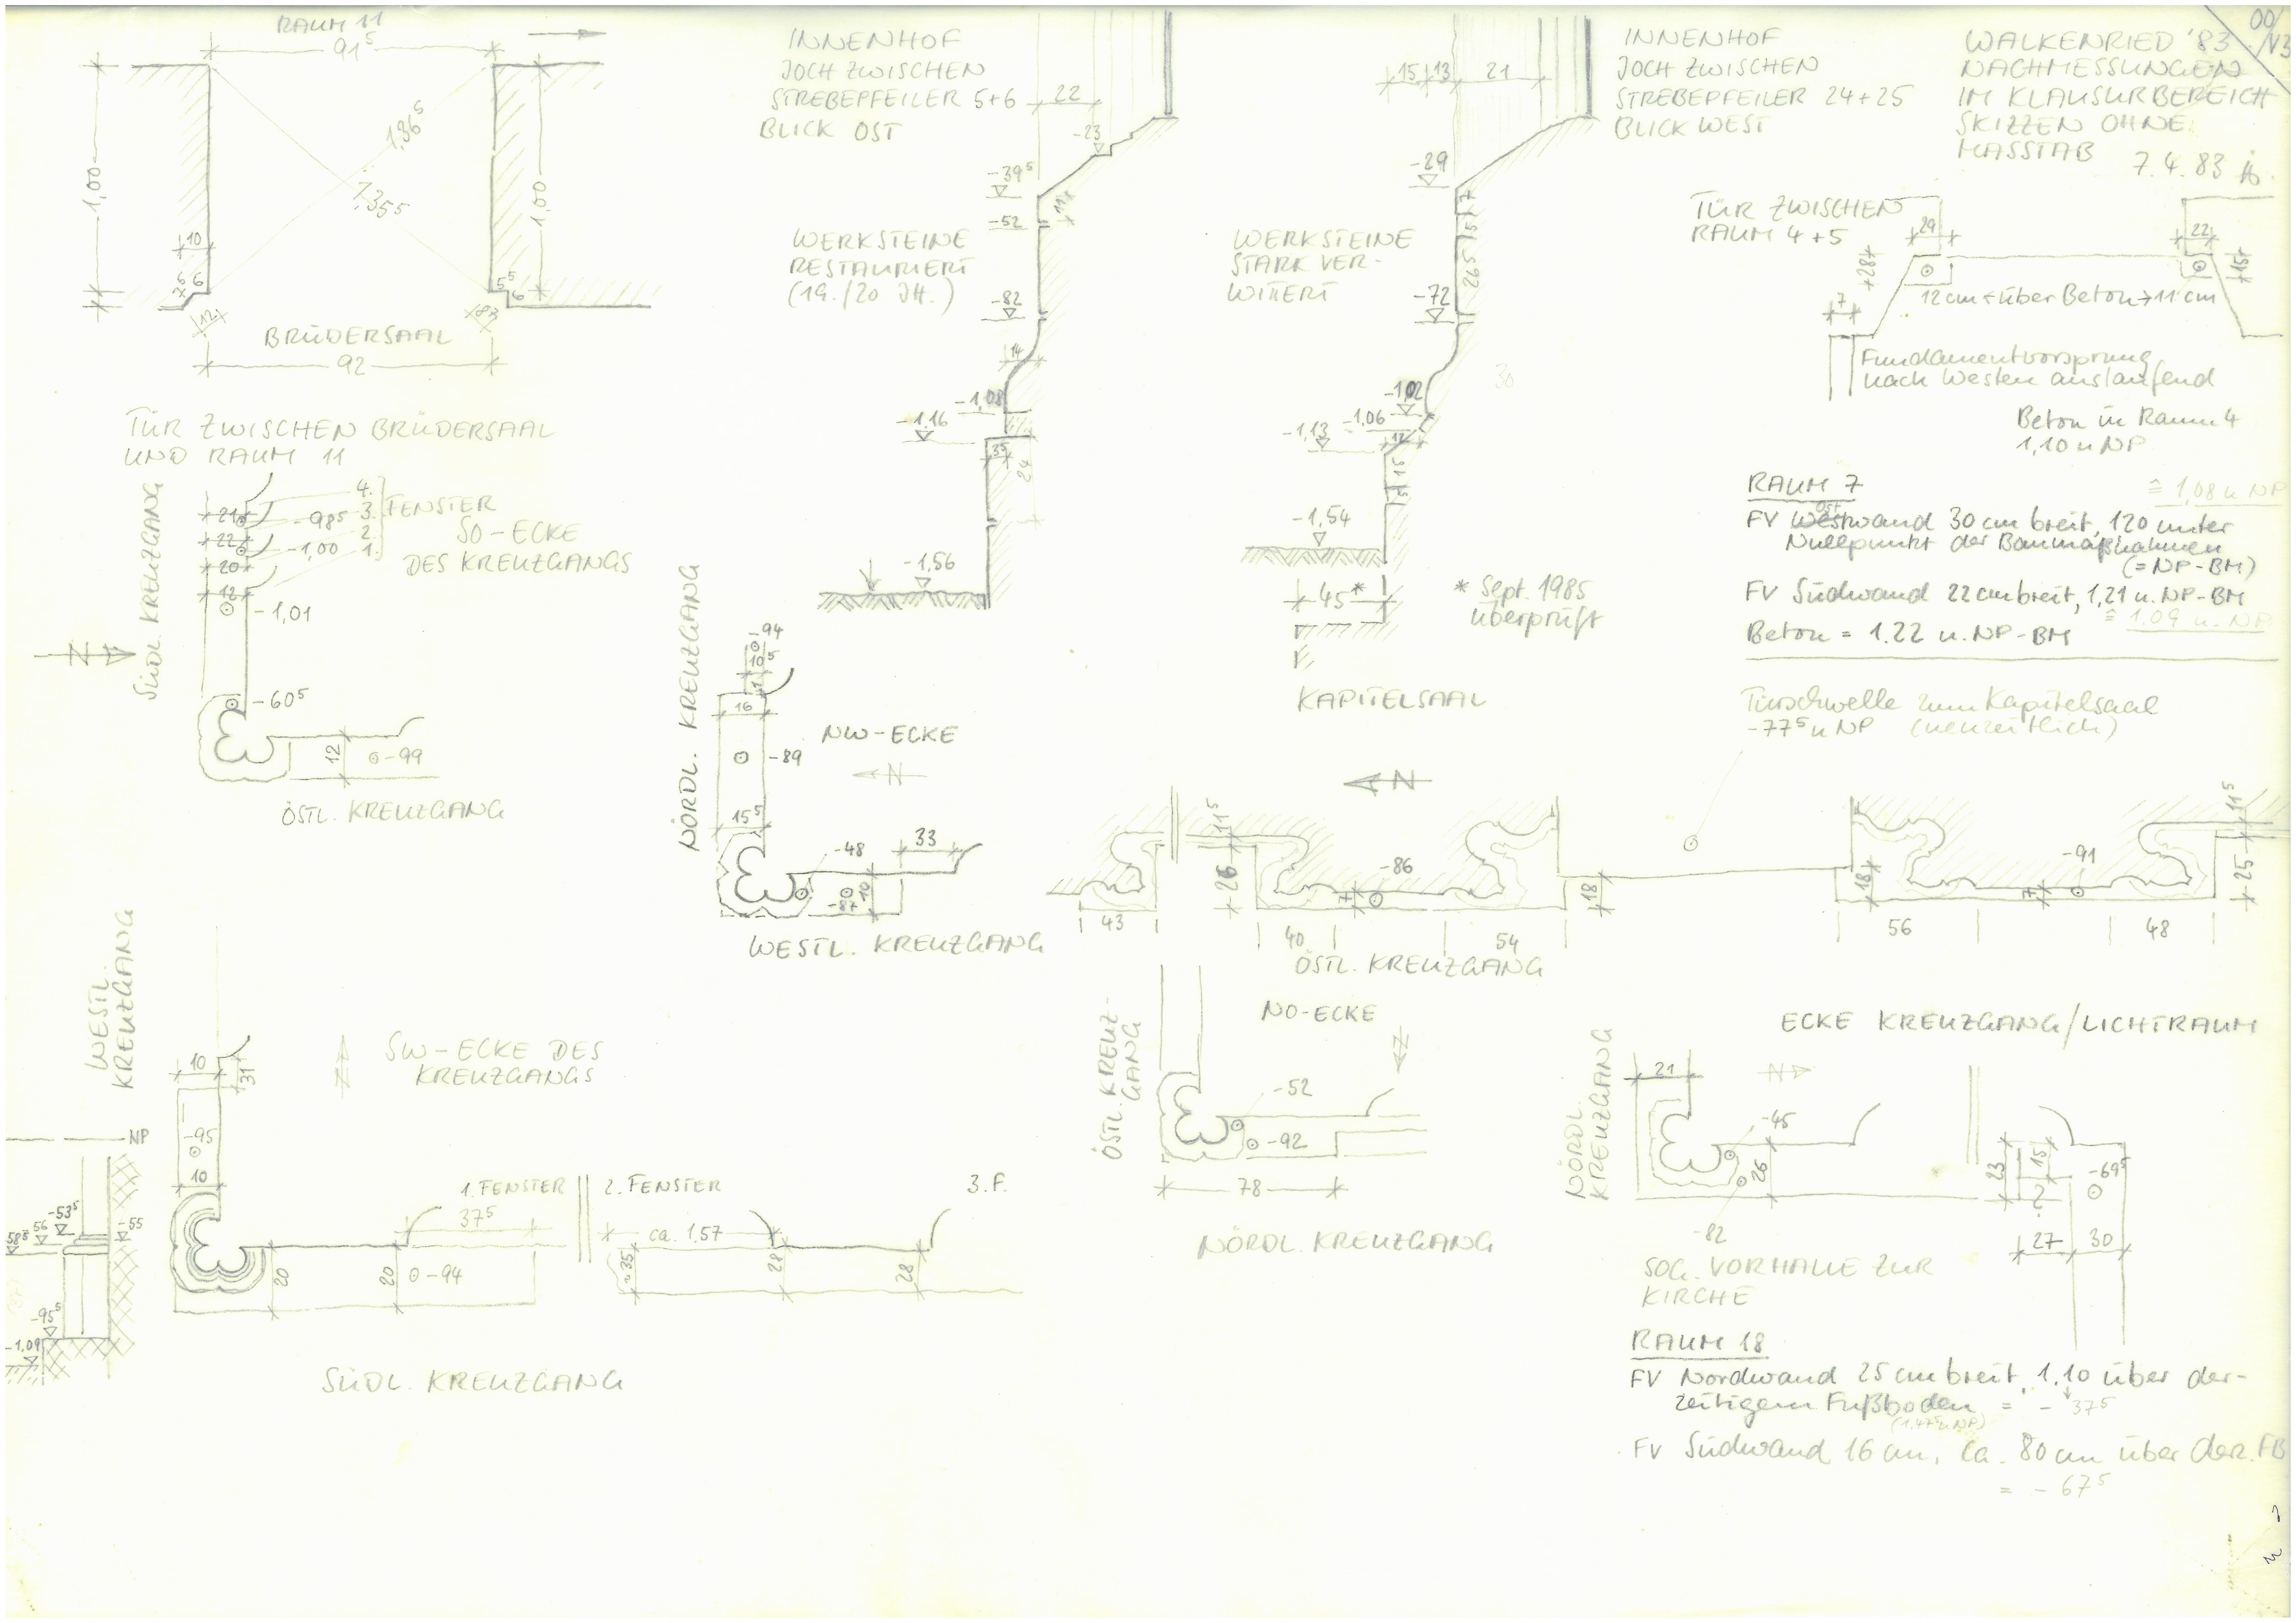 RAUM 11
91⁵
1,00
1,36⁵
1,35⁵
1,00
10
7⁵
6
5⁵
6
12
8⁵
BRÜDERSAAL
92
TÜR ZWISCHEN BRÜDERSAAL
UND RAUM 11
INNENHOF
JOCH ZWISCHEN
STREBEPFEILER 5+6
BLICK OST
22
-23
-39⁵
11
-52
WERKSTEINE
RESTAURIERT
(19./20 JH.)
-82
14
-1,08
-1,16
35
24
-1,56
15
13
21
-29
7
5
26⁵
WERKSTEINE
STARK VER-
WITTERT
-72
30
-1,02
-1,06
-1,13
12
15
5
-1,54
45*
* Sept. 1985
überprüft
INNENHOF
JOCH ZWISCHEN
STREBEPFEILER 24+25
BLICK WEST
00/V3
WALKENRIED '83
NACHMESSUNGEN
IM KLAUSURBEREICH
SKIZZEN OHNE
MASSTAB 7.4.83
TÜR ZWISCHEN
RAUM 4+5
29
22
28
15
7
12 cm ← über Beton → 11 cm
Fundamentvorsprung
nach Westen auslaufend
Beton in Raum 4
1,10 u NP
RAUM 7
≙ 1,08 u NP
FV Westwand 30 cm breit, 120 unter
Ost
Nullpunkt der Baumaßnahmen
(= NP-BM)
FV Südwand 22 cm breit, 1,21 u. NP-BM
≙ 1,09 u. NP
Beton = 1.22 u. NP-BM
SÜDL. KREUZGANG
21
22
20
12
-98⁵
-1,00
4.
3.
2.
1.
FENSTER
SO-ECKE
DES KREUZGANGS
-1,01
N
-60⁵
12
-99
ÖSTL. KREUZGANG
NÖRDL. KREUZGANG
-94
10⁵
16
NW-ECKE
-89
N
15⁵
-48
33
10
-87
WESTL. KREUZGANG
KAPITELSAAL
Türschwelle zum Kapitelsaal
-77⁵ u NP (neuzeitlich)
N
11⁵
26
43
40
7
-86
54
18
18
56
7
-91
48
11⁵
25
ÖSTL. KREUZGANG
WESTL.
KREUZGANG
10
31
SW-ECKE DES
KREUZGANGS
N
NP
-95
10
58⁵
56
-53⁵
-55
-95⁵
-1,09
1. FENSTER
37⁵
2. FENSTER
ca. 1,57
3. F.
20
20
-94
~35
28
28
SÜDL. KREUZGANG
ÖSTL. KREUZ-
GANG
NO-ECKE
N
-52
-92
78
NÖRDL. KREUZGANG
ECKE KREUZGANG/LICHTRAUM
NÖRDL.
KREUZGANG
21
N
-45
26
-82
23
15
?
-69⁵
27
30
SOG. VORHALLE ZUR
KIRCHE
RAUM 18
FV Nordwand 25 cm breit, 1.10 über der-
zeitigem Fußboden = - 37⁵
(1.47⁵ u NP)
FV Südwand 16 cm, ca. 80 cm über derz. FB
= - 67⁵